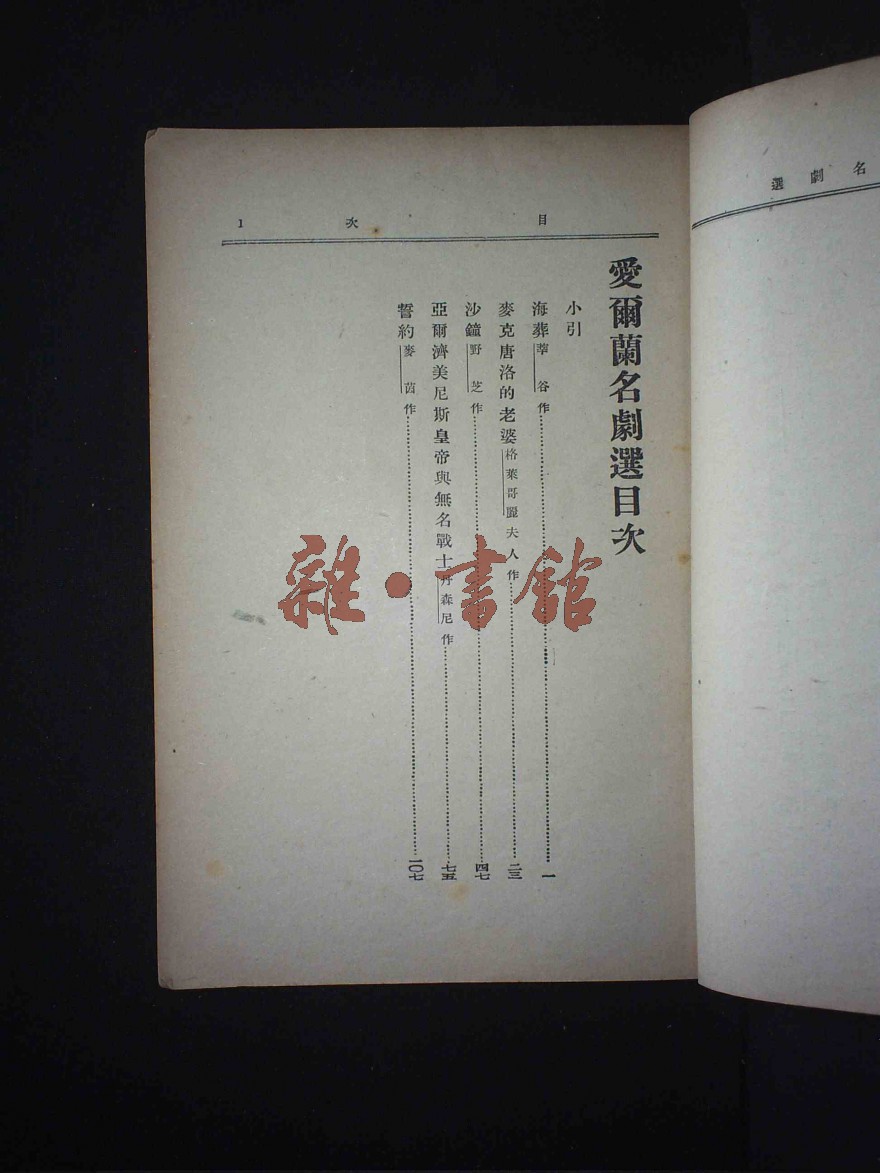 名劇選
目次 1
愛爾蘭名劇選目次
小引
海葬 莘谷作 一
麥克唐洛的老婆 格萊哥麗夫人作 二三
沙鐘 野芝作 四七
亞爾濟美尼斯皇帝與無名戰士 丹森尼作 七五
誓約 麥茵作 一〇七
雜·書館